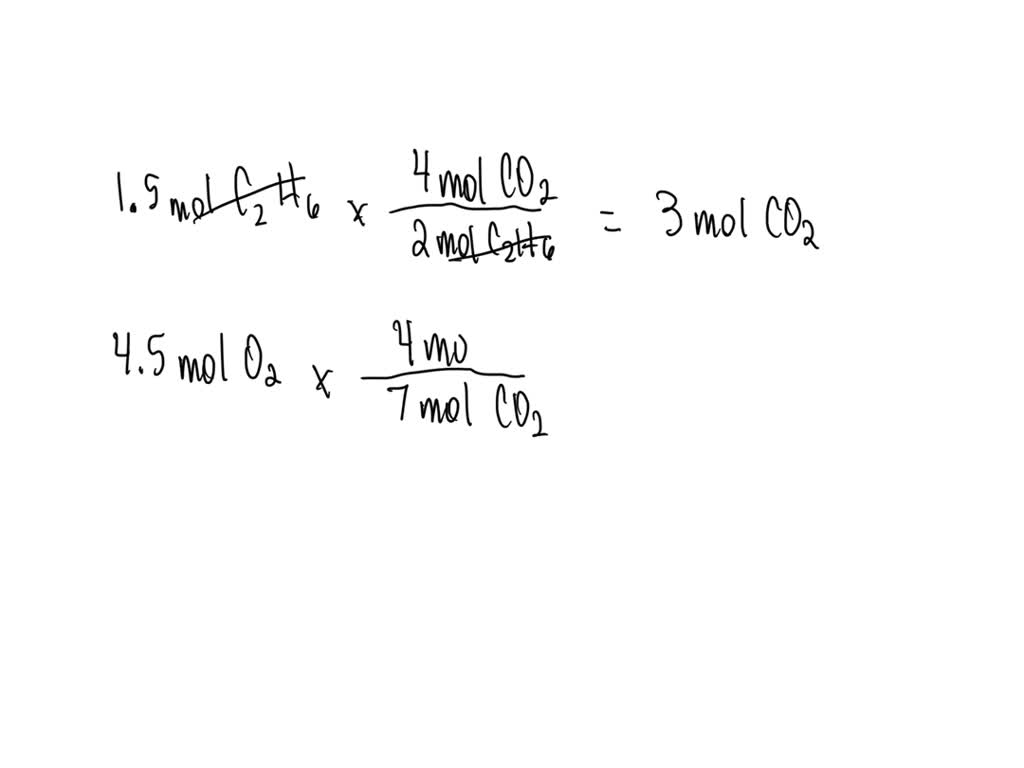 1.5 mol C₂H₆ x 4 mol CO₂ / 2 mol C₂H₆ = 3 mol CO₂
4.5 mol O₂ x 4 mo / 7 mol CO₂